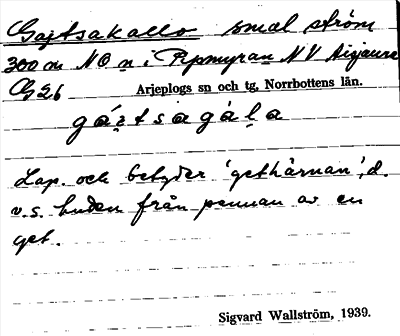 Gajtsakallo smal ström
300 m NO n i Pipmyran NV Aisjaure
G26 Arjeplogs sn och tg, Norrbottens län.
gáʒtsagáḷa
Lap. och betyder 'gethårnan', d.
v.s. huden från pannan av en
get.
Sigvard Wallström, 1939.